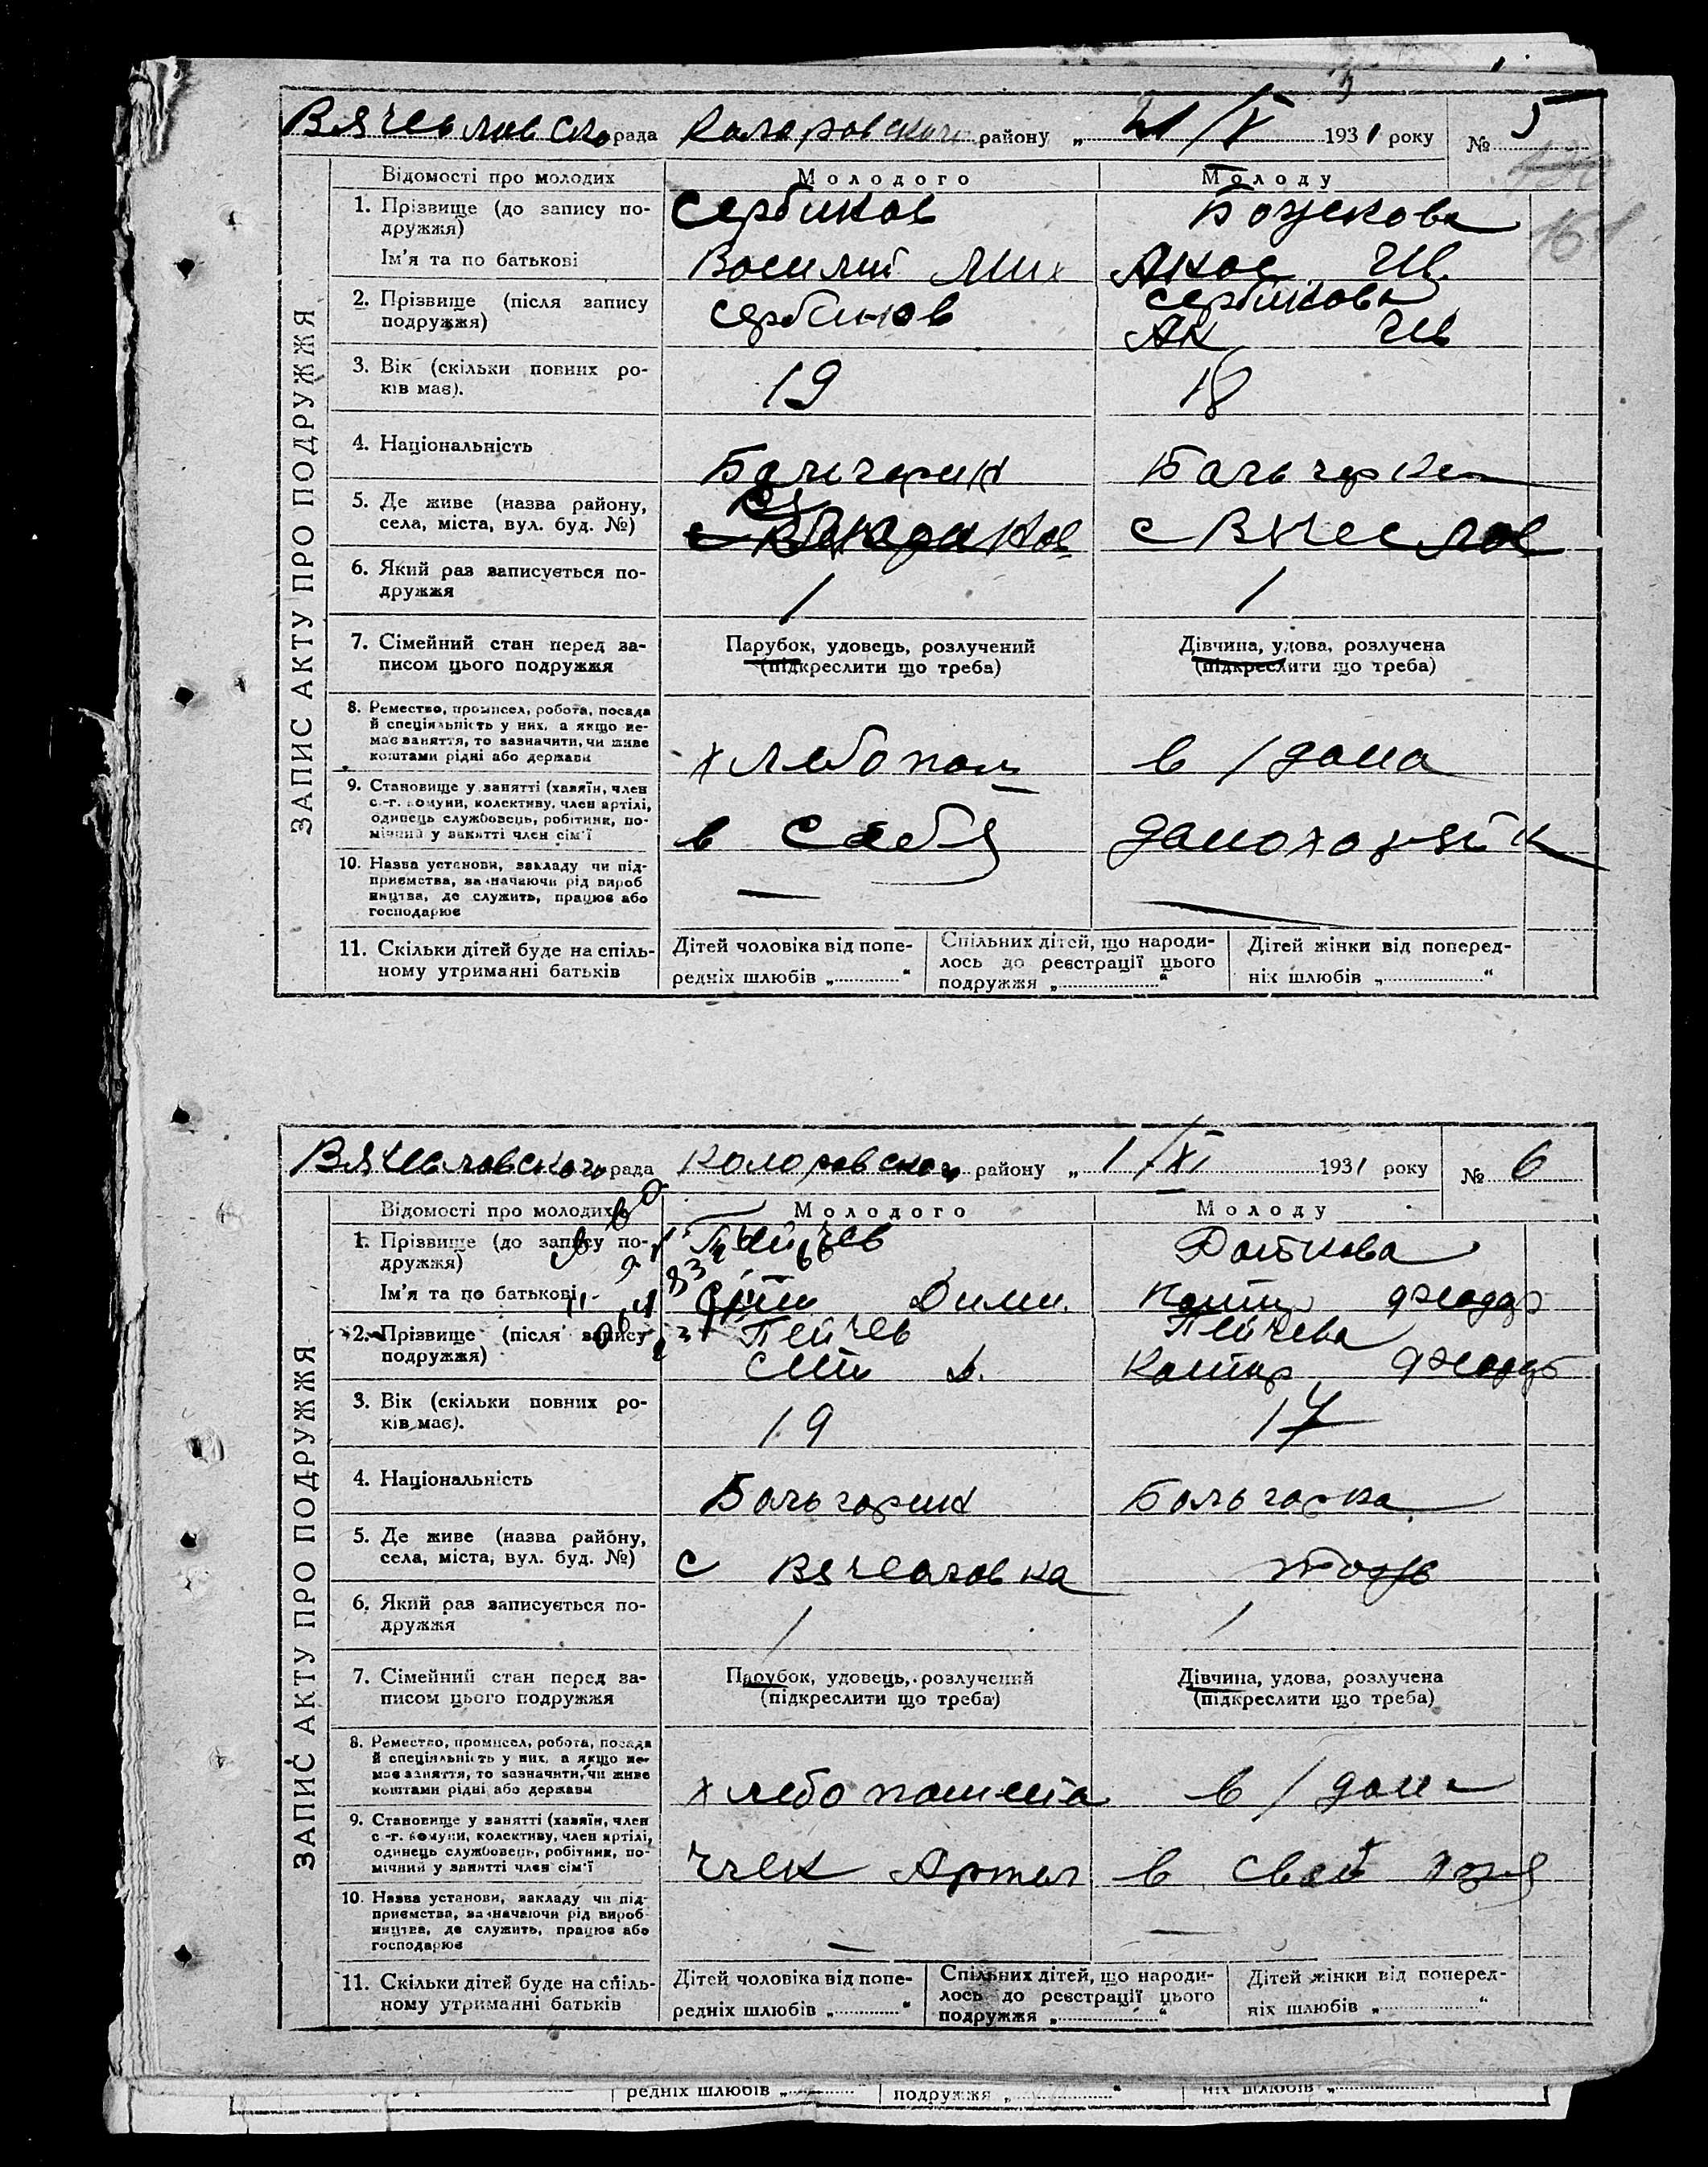 Вячеславско рада Коларовского району „ 21/X 1931 року № 5
Відомості про молодих Молодого Молоду
1. Прізвище (до запису по-
дружжя) Сербинов Божкова
161
Ім'я та по батькові Василий Мих Ив.
2. Прізвище (після запису
подружжя) Сербинов Сербинова
Ив
3. Вік (скільки повних ро-
ків має). 19 18
4. Національність Бальгарин Бальгарка
5. Де живе (назва району,
села, міста, вул. буд. №) с Вячеслов
6. Який раз записується по-
дружжя 1 1
7. Сімейний стан перед за-
писом цього подружжя
Парубок, удовець, розлучений
(підкреслити що треба)
Дівчина, удова, розлучена
(підкреслити що треба)
8. Ремество, промисел, робота, посада
й спеціяльність у них, а якщо не-
має заняття, то зазначити, чи живе
коштами рідні або держави хлебопаш в/дома
9. Становище у занятті (хазяїн, член
с.-г. комуни, колективу, член артілі,
одинець службовець, робітник, по-
мічний у занятті член сім'ї в себя домохозяйк
10. Назва установи, закладу чи під-
приємства, зазначаючи рід вироб
ництва, де служить, працює або
господарює — —
11. Скільки дітей буде на спіль-
ному утриманні батьків
Дітей чоловіка від попе-
редніх шлюбів „ “
Спільних дітей, що народи-
лось до реєстрації цього
подружжя „ “
Дітей жінки від поперед-
ніх шлюбів „ “
ЗАПИС АКТУ ПРО ПОДРУЖЖЯ
Вячеславского рада Коларовского району „ 1/XI 1931 року № 6
Відомості про молодих Молодого Молоду
1. Прізвище (до запису по-
дружжя) Пейчев
Ім'я та по батькові Дими.
2. Прізвище (після запису
подружжя) Пейчев Пейчева
Д.
3. Вік (скільки повних ро-
ків має). 19 17
4. Національність Бальгарин Бальгарка
5. Де живе (назва району,
села, міста, вул. буд. №) с Вячеславка тоже
6. Який раз записується по-
дружжя 1 1
7. Сімейний стан перед за-
писом цього подружжя
Парубок, удовець, розлучений
(підкреслити що треба)
Дівчина, удова, розлучена
(підкреслити що треба)
8. Ремество, промисел, робота, посада
й спеціяльність у них, а якщо не-
має заняття, то зазначити, чи живе
коштами рідні або держави хлебопашета в/дома
9. Становище у занятті (хазяїн, член
с.-г. комуни, колективу, член артілі,
одинець службовець, робітник, по-
мічний у занятті член сім'ї член Артел в свой
10. Назва установи, закладу чи під-
приємства, зазначаючи рід вироб-
ництва, де служить, працює або
господарює — —
11. Скільки дітей буде на спіль-
ному утриманні батьків
Дітей чоловіка від попе-
редніх шлюбів „ “
Спільних дітей, що народи-
лось до реєстрації цього
подружжя „ “
Дітей жінки від поперед-
ніх шлюбів „ “
ЗАПИС АКТУ ПРО ПОДРУЖЖЯ
редніх шлюбів „ подружжя „ “ ніх шлюбів „